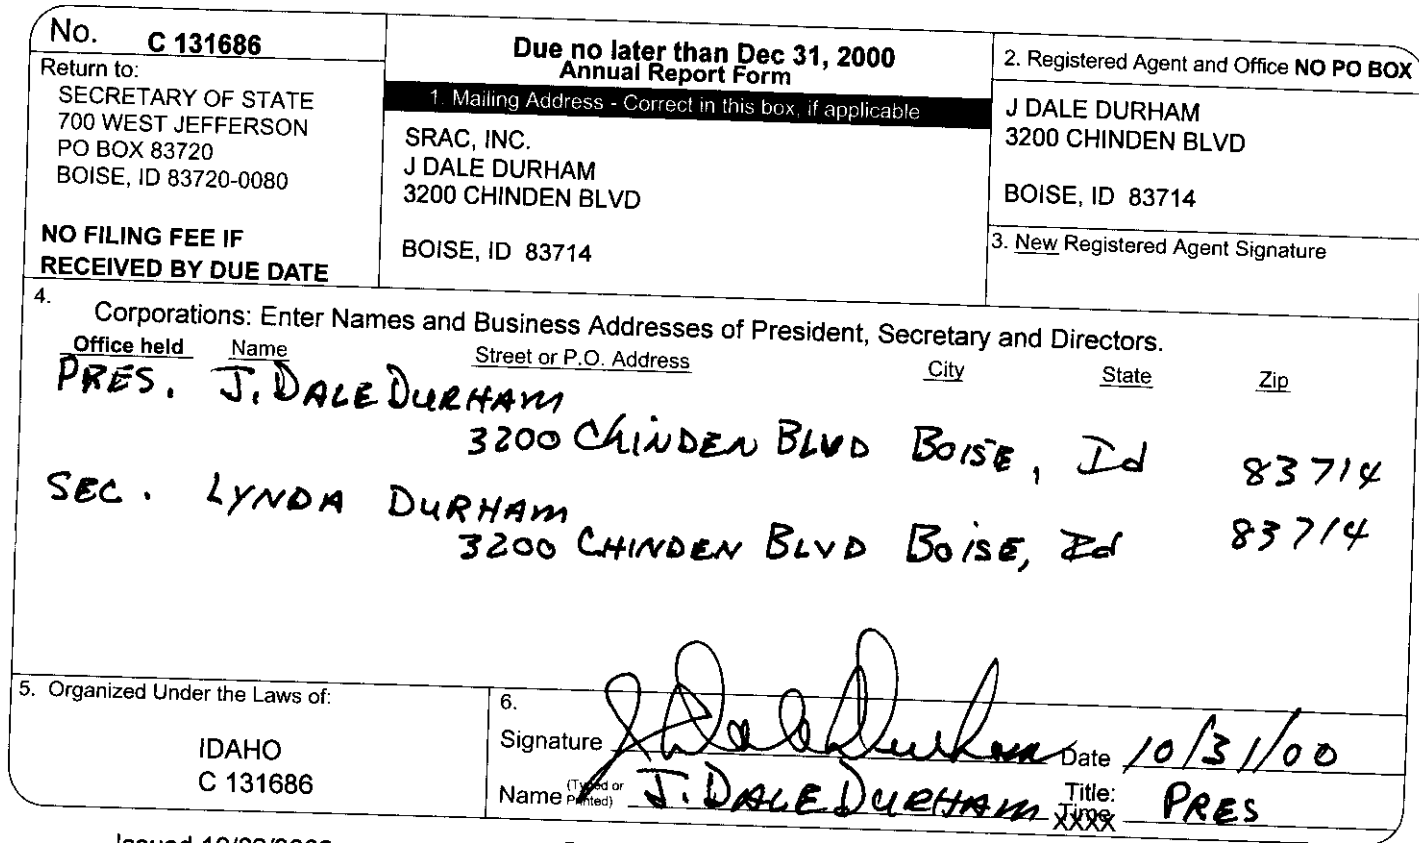 No. C 131686
Return to:
SECRETARY OF STATE
700 WEST JEFFERSON
PO BOX 83720
BOISE, ID 83720-0080
NO FILING FEE IF
RECEIVED BY DUE DATE
Due no later than Dec 31, 2000
Annual Report Form
1. Mailing Address - Correct in this box, if applicable
SRAC, INC.
J DALE DURHAM
3200 CHINDEN BLVD
BOISE, ID 83714
2. Registered Agent and Office NO PO BOX
J DALE DURHAM
3200 CHINDEN BLVD
BOISE, ID 83714
3. New Registered Agent Signature
4.
Corporations: Enter Names and Business Addresses of President, Secretary and Directors.
Office held Name Street or P.O. Address City State Zip
PRES. J. DALE DURHAM
3200 CHINDEN BLVD BOISE, Id 83714
SEC. LYNDA DURHAM
3200 CHINDEN BLVD BOISE, Id 83714
5. Organized Under the Laws of:
IDAHO
C 131686
6.
Signature J Dale Durham Date 10/31/00
Name (Typed or Printed) J. DALE DURHAM Title: PRES